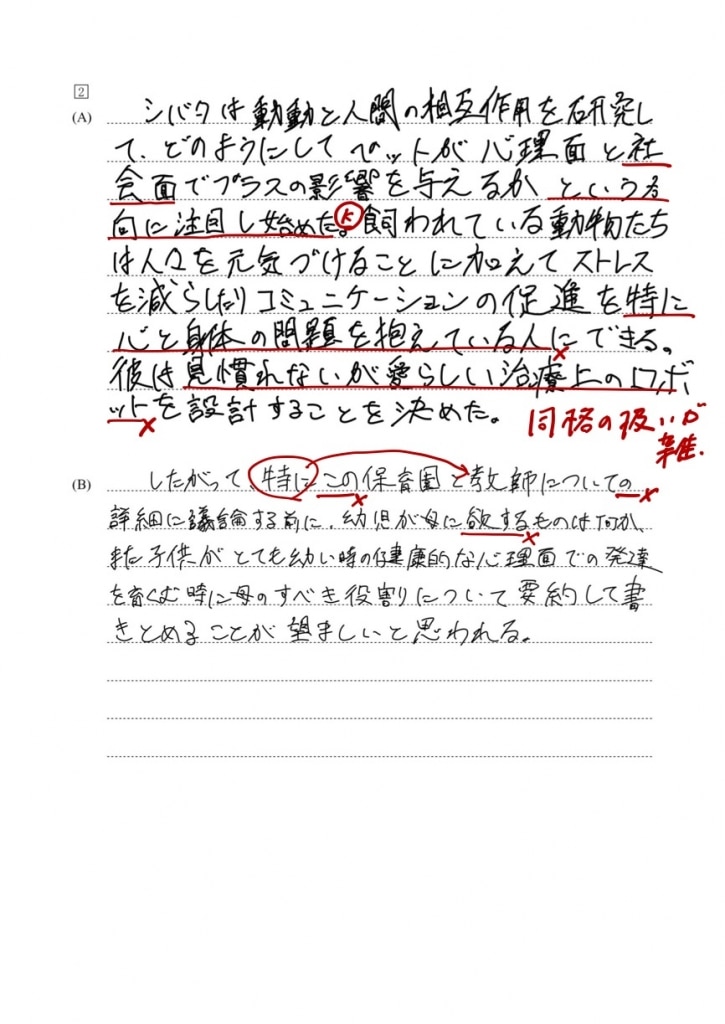 2
(A) シバタは動動と人間の相互作用を研究し
て、どのようにしてペットが心理面と社
会面でプラスの影響を与えるかという方
向に注目し始めた。飼われている動物たち
は人々を元気づけることに加えてストレス
を減らしたりコミュニケーションの促進を特に
心と身体の問題を抱えている人にできる。
彼は見慣れないが愛らしい治療上のロボ
ットを設計することを決めた。
同格の扱いが
難.
(B) したがって、特にこの保育園と教師についての
詳細に議論する前に、幼児が母に欲するものは何か、
また子供がとても幼い時の健康的な心理面での発達
を育くむ時に母のすべき役割りについて要約して書
きとめることが望ましいと思われる。